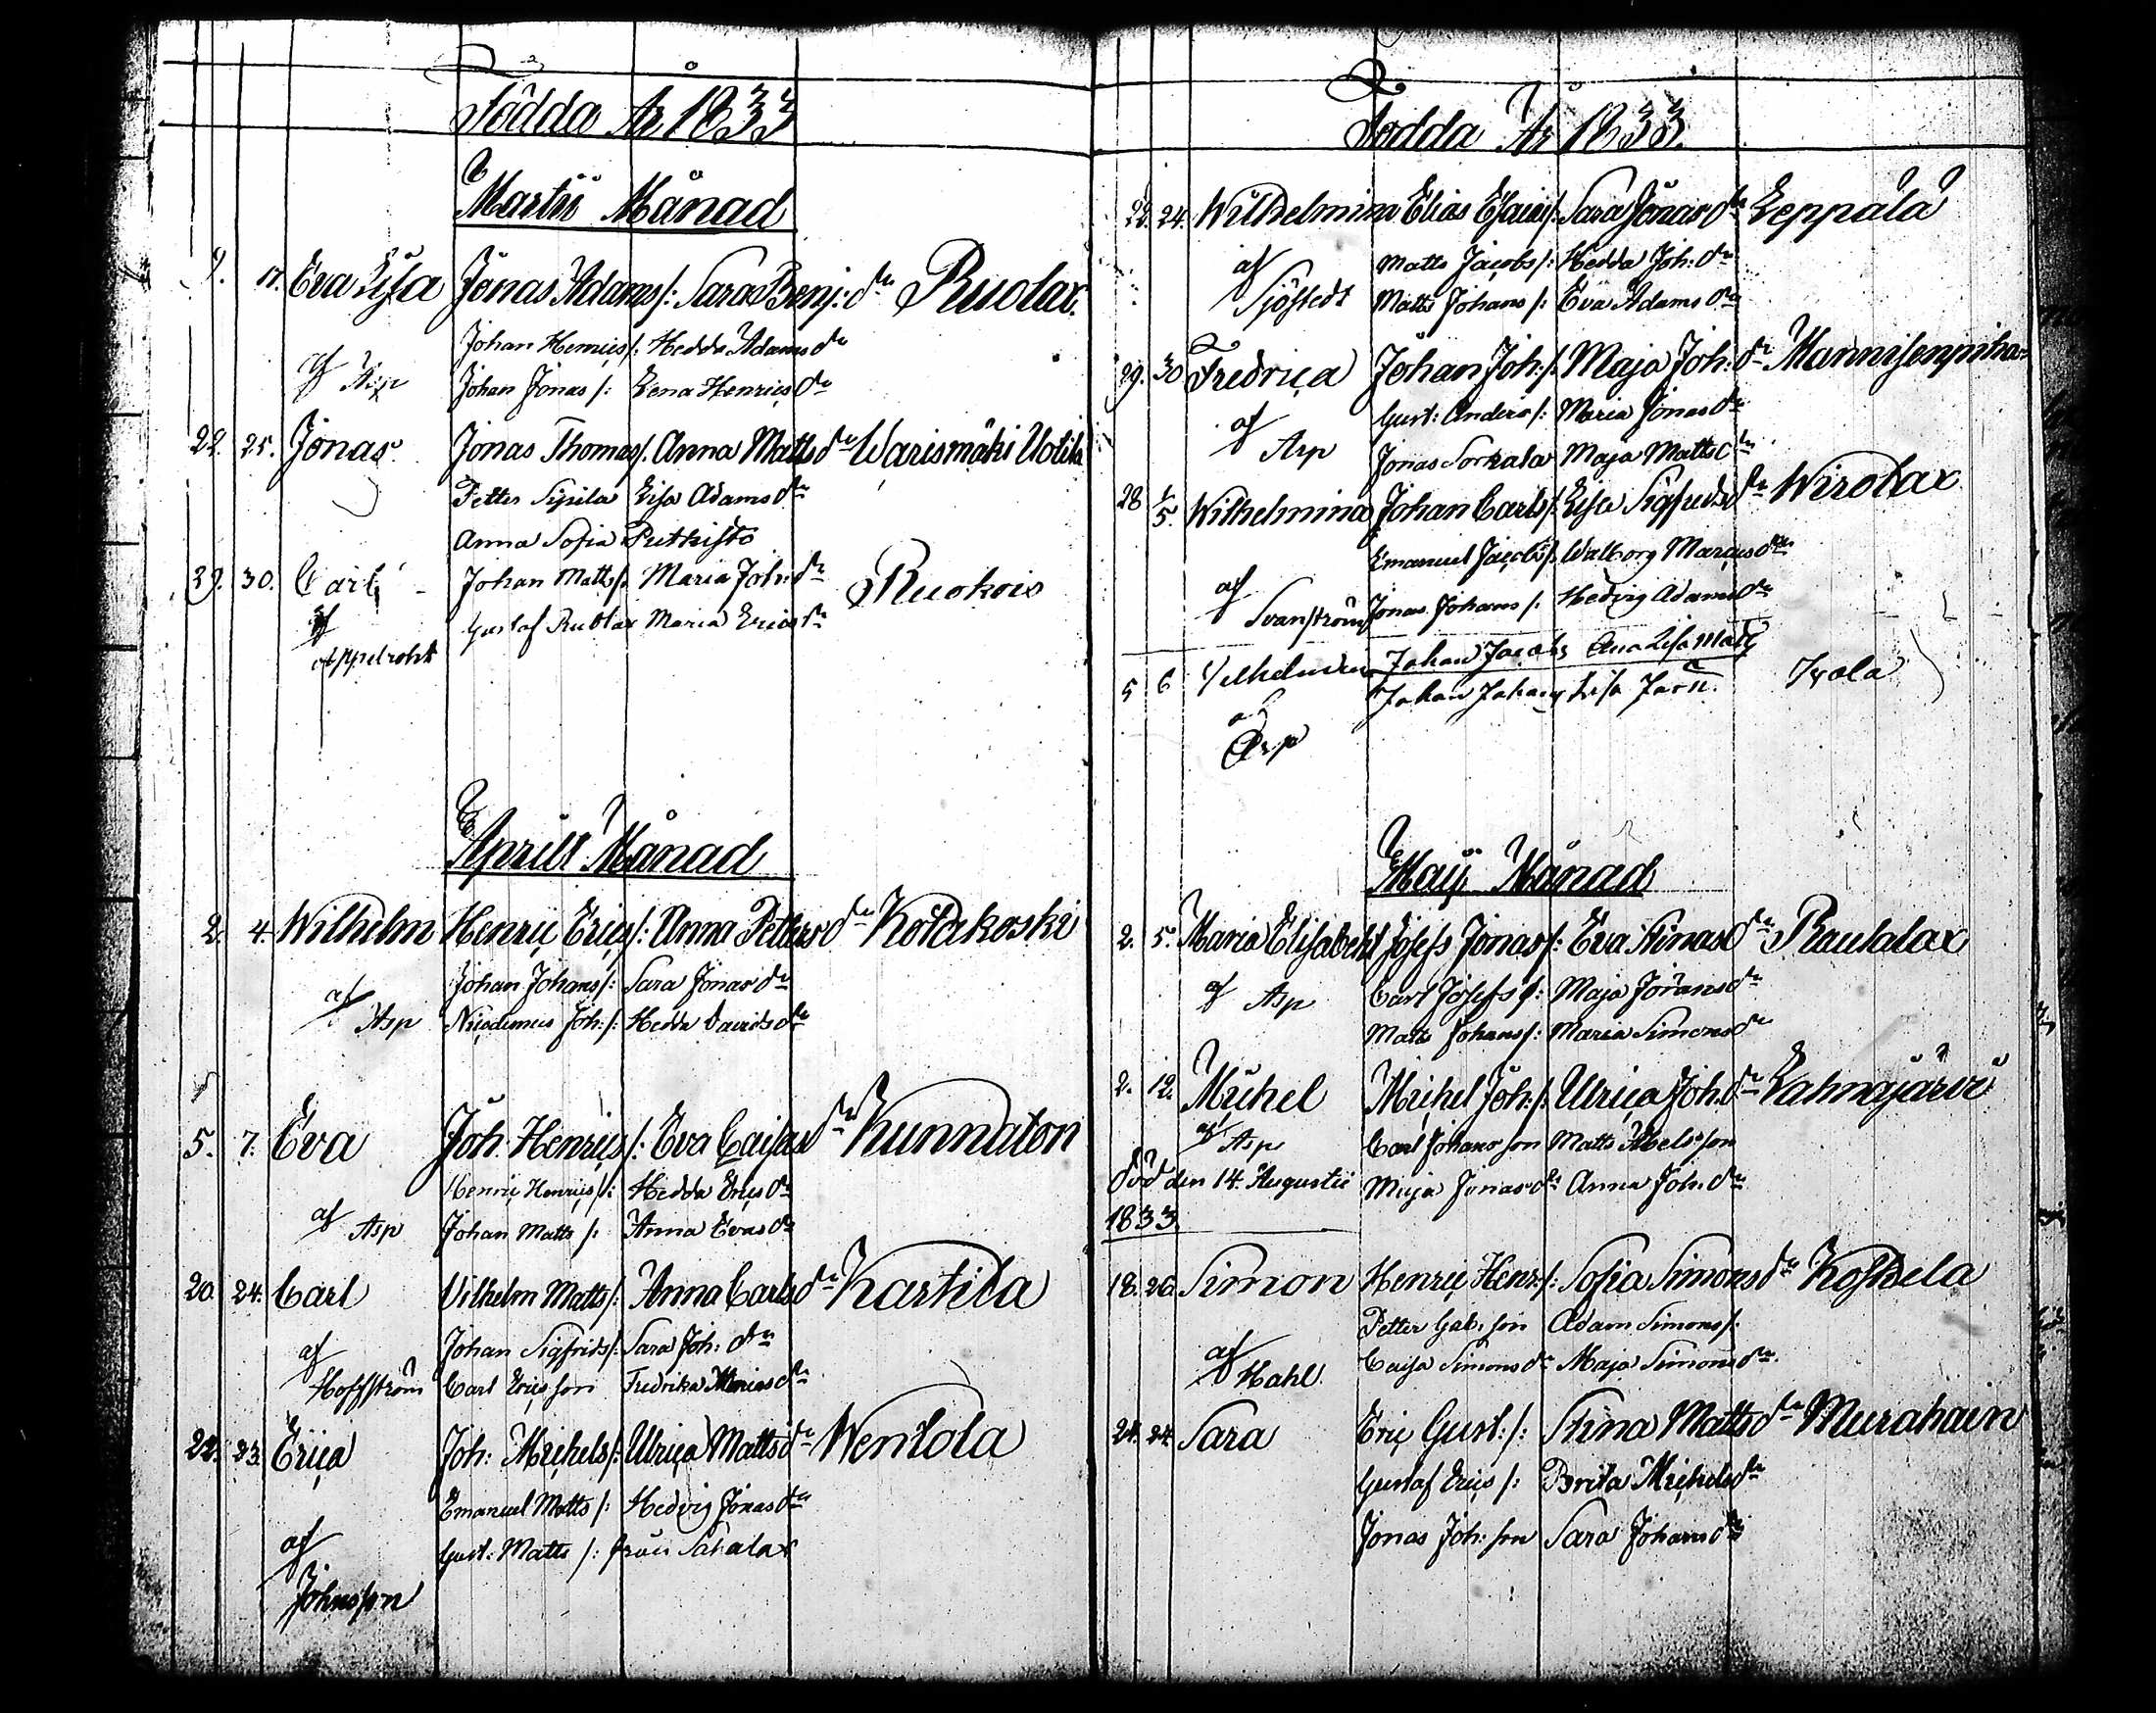 Födda År 1833
Martii Månad
9. 17. Eva Lisa Jonas Adams /: Sara Benj: dr Ruolax.
Johan Henrics /: Hedda Adams dr
af Asp Johan Jonas /: Lena Henrics dr
22. 25. Jonas Jonas Thomas /: Anna Matts dr Warismäki Uotila
Petter Sipila Lisa Adams dr
Anna Sofia Puttisto
29. 30. Carl Johan Matts /: Maria Joh: dr Ruokois
af Gustaf Ruolax Maria Erics dr
Appelroht
Aprill Månad
2. 4. Wilhelm Henric Erics /: Anna Petters dr Kotakoski
af Johan Johans /: Sara Jonas dr
Asp Nicodemus Joh: /: Hedda Davids dr
5. 7. Eva Joh: Henrics /: Eva Caisas dr Kunnaton
Henric Henrics /: Hedda Erics dr
af Asp Johan Matts /: Anna Evas dr
20. 24. Carl Vilhelm Matts /: Anna Carls dr Kartila
af Johan Sigfrids /: Sara Joh: dr
Hoffström Carl Ericsson Fredrika Marias dr
22. 23. Erica Joh: Michels /: Ulrica Matts dr Wentola
Emanuel Matts /: Hedvig Jonas dr
af Gust: Matts /: Sahalax
Johnsson
Födda År 1833.
22. 24. Wilhelmina Elias Esaias /: Sara Jonas dr Leppälä
af Matts Jacobs /: Hedda Joh: dr
Sjöstedt Matts Johans /: Eva Adams dr
29. 30 Fredrica Johan Joh: /: Maja Joh: dr Mannisenpiha
af Gust: Anders /: Maria Jonas dr
Asp Jonas Sorkala Maja Matts dr
28 1/5. Wilhelmina Johan Carls /: Lisa Sigfreds dr Wirolax
Emanuel Jacobs /: Walborg Marcus dr
af Svanström Jonas Johans /: Hedvig Adams dr
5 6 Vilhelmina Johan Jacobs Ana Lisa Matts
Johan Johans Lisa
af Asp
Maij Månad
2. 5. Maria Elisabeht Josefs Jonas /: Eva Stinas dr Rautalax
af Asp Carl Josefs /: Maja Jörans dr
Matts Johans /: Maria Simons dr
2. 12. Michel Michel Joh: /: Ulrica Joh: dr Lahnajärvi
af Asp Carl Johansson Matts Abelsson
död den 14. Augustii Maja Jonas dr Anna Joh: dr
1833.
18. 26. Simon Henric Henr: /: Sofia Simons dr Koskela
Petter Gab: son Adam Simons /:
af Hahl. Caisa Simons dr Maja Simons dr
24. 24. Sara Eric Gust: /: Stina Matts dr Murahain
Gustaf Erics /: Brita Michels dr
Jonas Joh: son Sara Johans dr